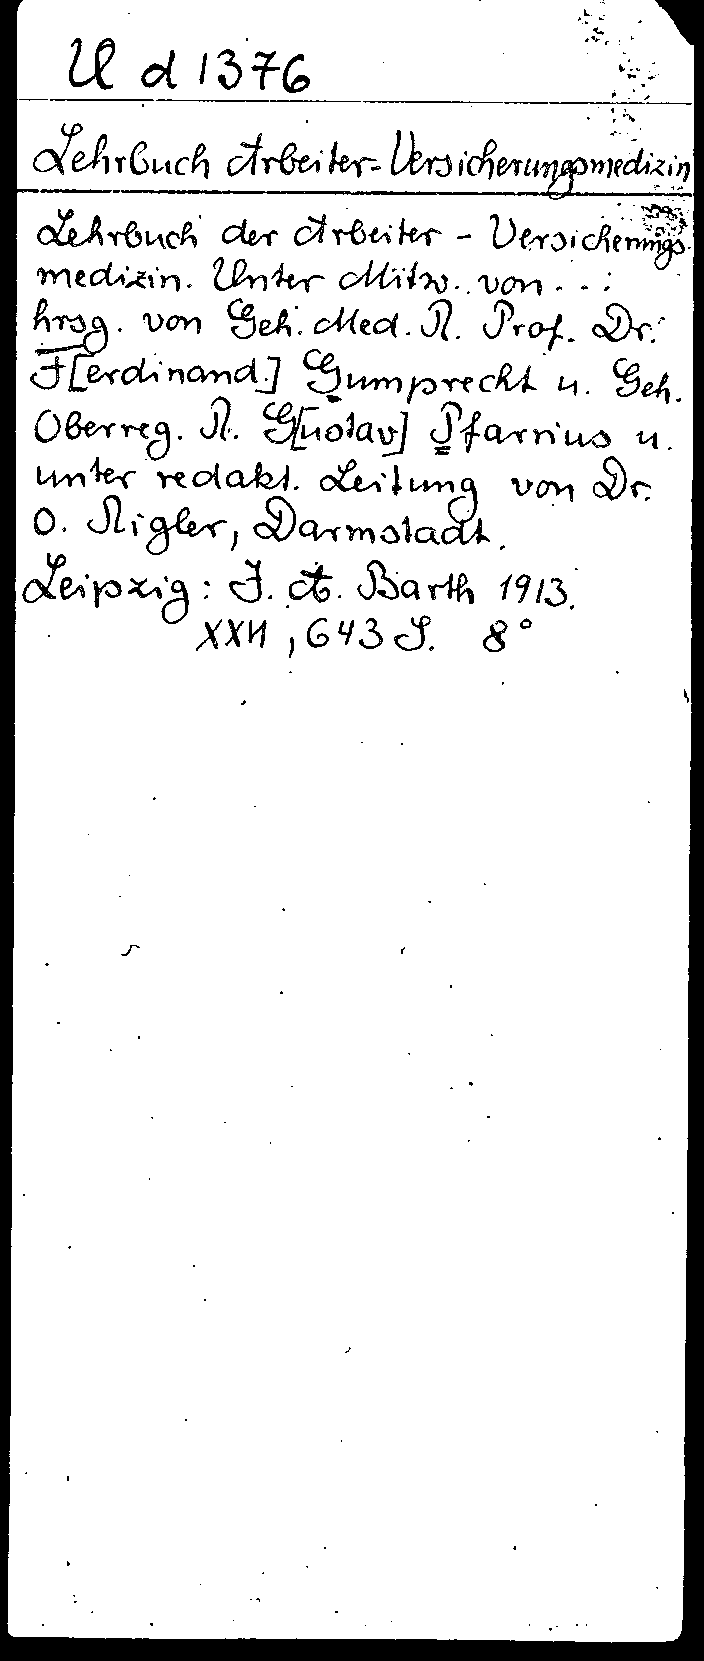 U d 1376
Lehrbuch Arbeiter-Versicherungsmedizin
Lehrbuch der Arbeiter-Versicherungs-
medizin. Unter Mitw. von...:
hrsg. von Geh. Med. R. Prof. Dr.
F[erdinand] Gumprecht u. Geh.
Oberreg. R. G[ustav] Pfarrius u.
unter redakt. Leitung von Dr.
O. Rigler, Darmstadt.
Leipzig: J. A. Barth 1913.
XXII, 643 S. 8°